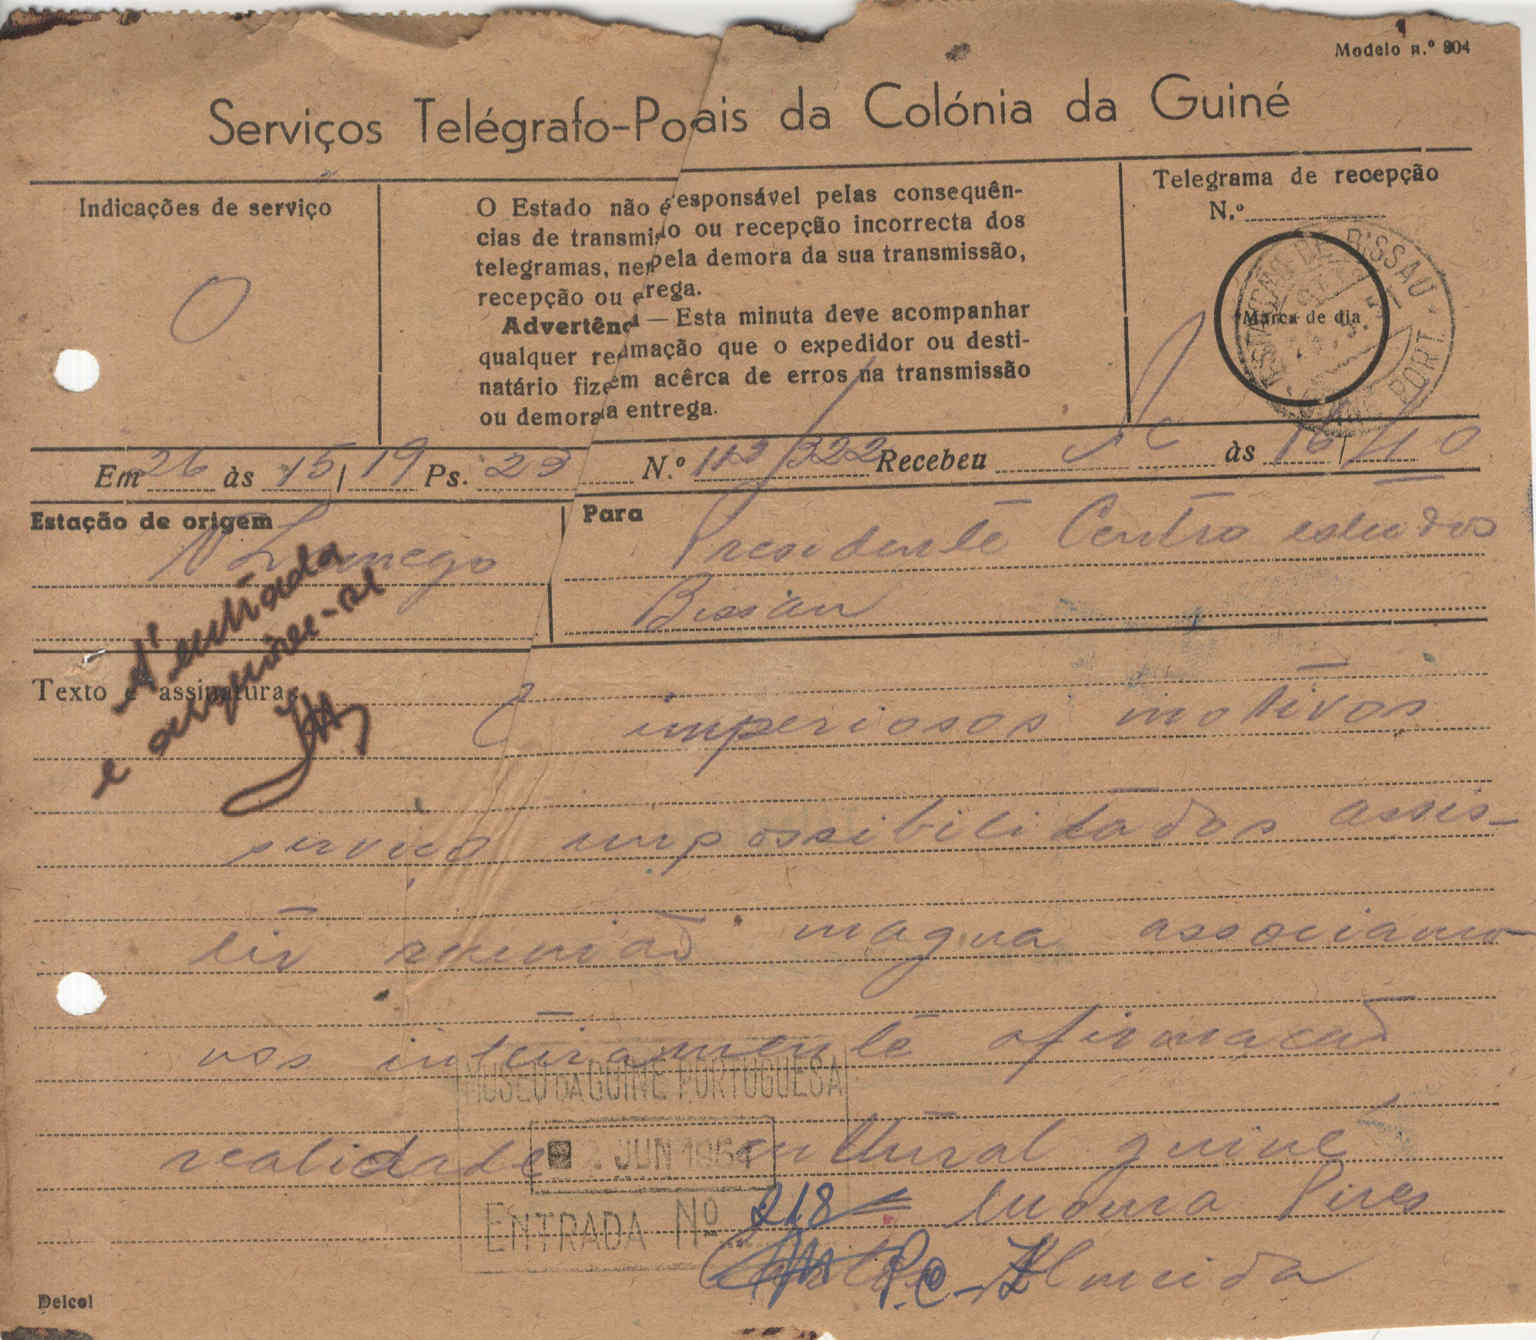 Modelo n.º 804
Serviços Telégrafo-Po ais da Colónia da Guiné
Indicações de serviço
O
O Estado não é responsável pelas consequên-
cias de transmi o ou recepção incorrecta dos
telegramas, nem pela demora da sua transmissão,
recepção ou e rega.
Advertênci — Esta minuta deve acompanhar
qualquer re mação que o expedidor ou desti-
natário fize em acêrca de erros na transmissão
ou demora a entrega.
Telegrama de recepção
N.º
BISSAU
PORT.
Marca de dia
Em 26 às 15 | 19 Ps. 23 N.º 112/322 Recebeu às 16 | 40
Estação de origem
N Lamego
Para
Presidente Centro estudos
Bissau
A' entrada
e arquive-se
Texto e assinatura
imperiosos motivos
serviço impossibilitados assis-
tir reunião magna associamo
nos inteiramente afirmacão
realidade cultural guiné
Moura Pires
Almeida
MUSEU DA GUINÉ PORTUGUESA
2. JUN 1951
ENTRADA Nº 218
Deicol